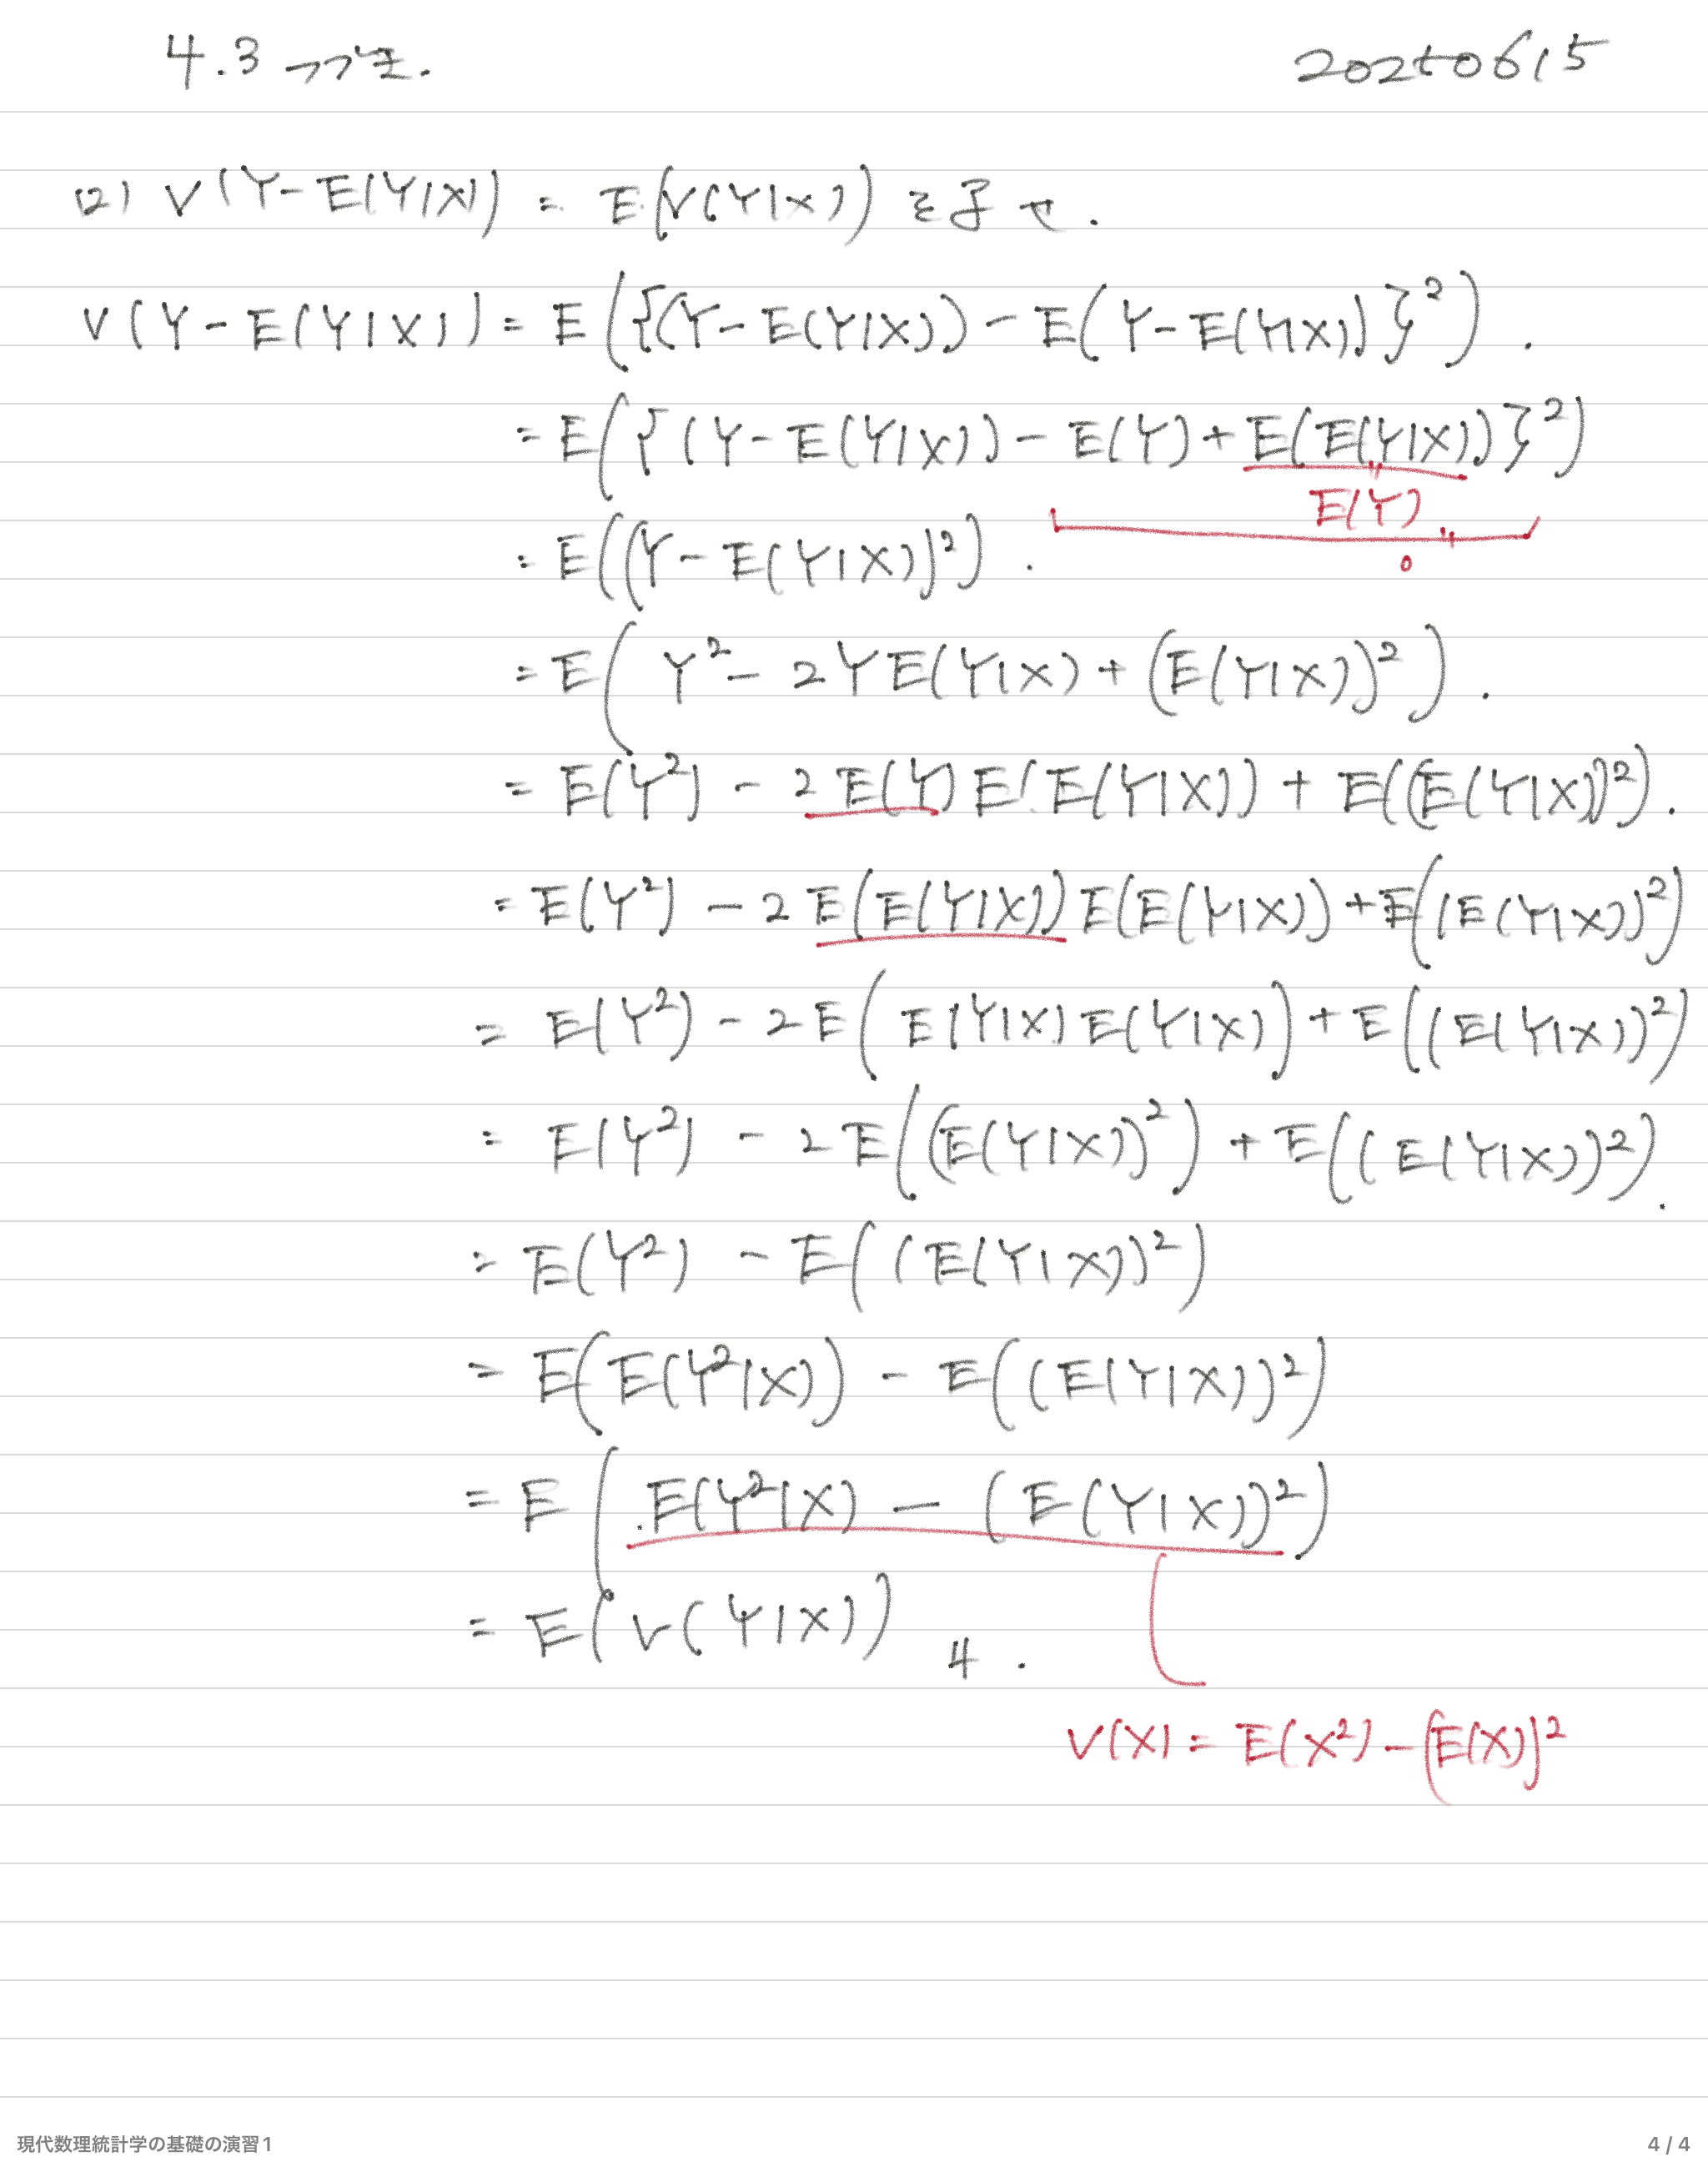 4.3 つづき.
20250615
(2) V(Y-E(Y|X)) = E(V(Y|X)) を示せ.
V(Y-E(Y|X)) = E({(Y-E(Y|X)) - E(Y-E(Y|X))}²).
= E({(Y-E(Y|X)) - E(Y) + E(E(Y|X))}²)
E(Y)
= E((Y-E(Y|X))²).
0
= E(Y² - 2YE(Y|X) + (E(Y|X))²).
= E(Y²) - 2E(Y)E(E(Y|X)) + E((E(Y|X))²).
= E(Y²) - 2E(E(Y|X))E(E(Y|X)) + E((E(Y|X))²)
= E(Y²) - 2E(E(Y|X)E(Y|X)) + E((E(Y|X))²)
= E(Y²) - 2E((E(Y|X))²) + E((E(Y|X))²).
= E(Y²) - E((E(Y|X))²)
= E(E(Y²|X)) - E((E(Y|X))²)
= E(E(Y²|X) - (E(Y|X))²)
= E(V(Y|X))
V(X) = E(X²) - (E(X))²
現代数理統計学の基礎の演習1
4 / 4